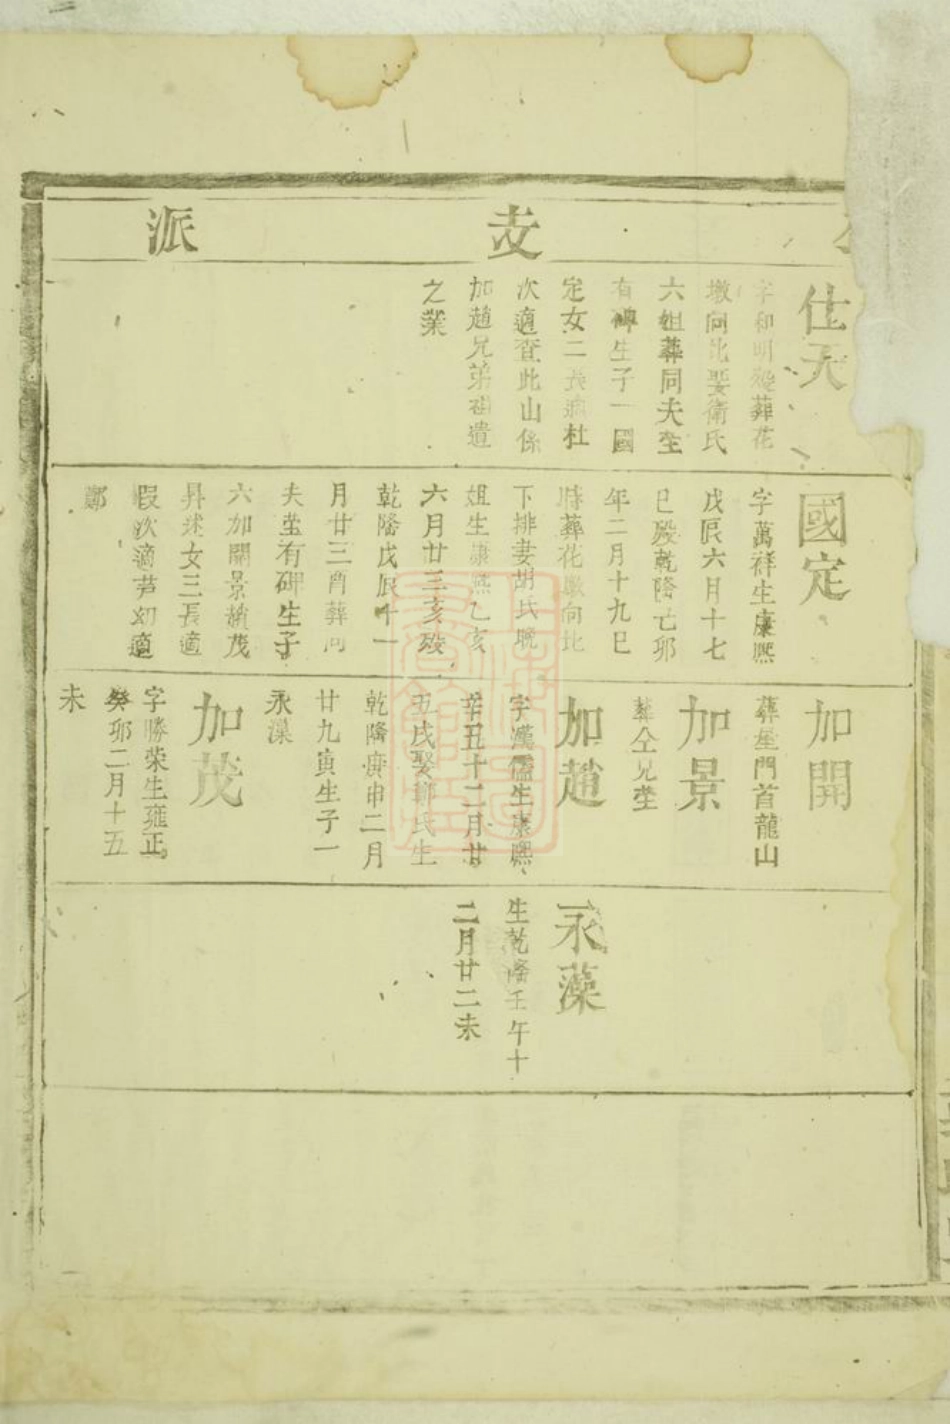 支派
仕天
字和明殁葬花
墩向北娶衛氏
六姐葬同夫塋
有碑生子一國
定女二長適杜
次適查此山係
加趙兄弟祖遺
之業
國定
字萬祥生康熙
戊辰六月十七
巳殿乾隆乙卯
年二月十九巳
時葬花墩向北
下排妻胡氏晚
姐生康熙乙亥
六月廿三亥殁
乾隆戊辰十一
月廿三酉葬同
夫塋有碑生子
六加開景趙茂
昇述女三長適
殷次適芦幼適
鄭
加開
葬屋門首龍山
加景
葬仝兄塋
加趙
字漢儒生康熙
辛丑十二月廿
五戌娶鄭氏生
乾隆庚申二月
廿九寅生子一
永藻
加茂
字勝荣生雍正
癸卯二月十五
未
永藻
生乾隆壬午十
二月廿二未